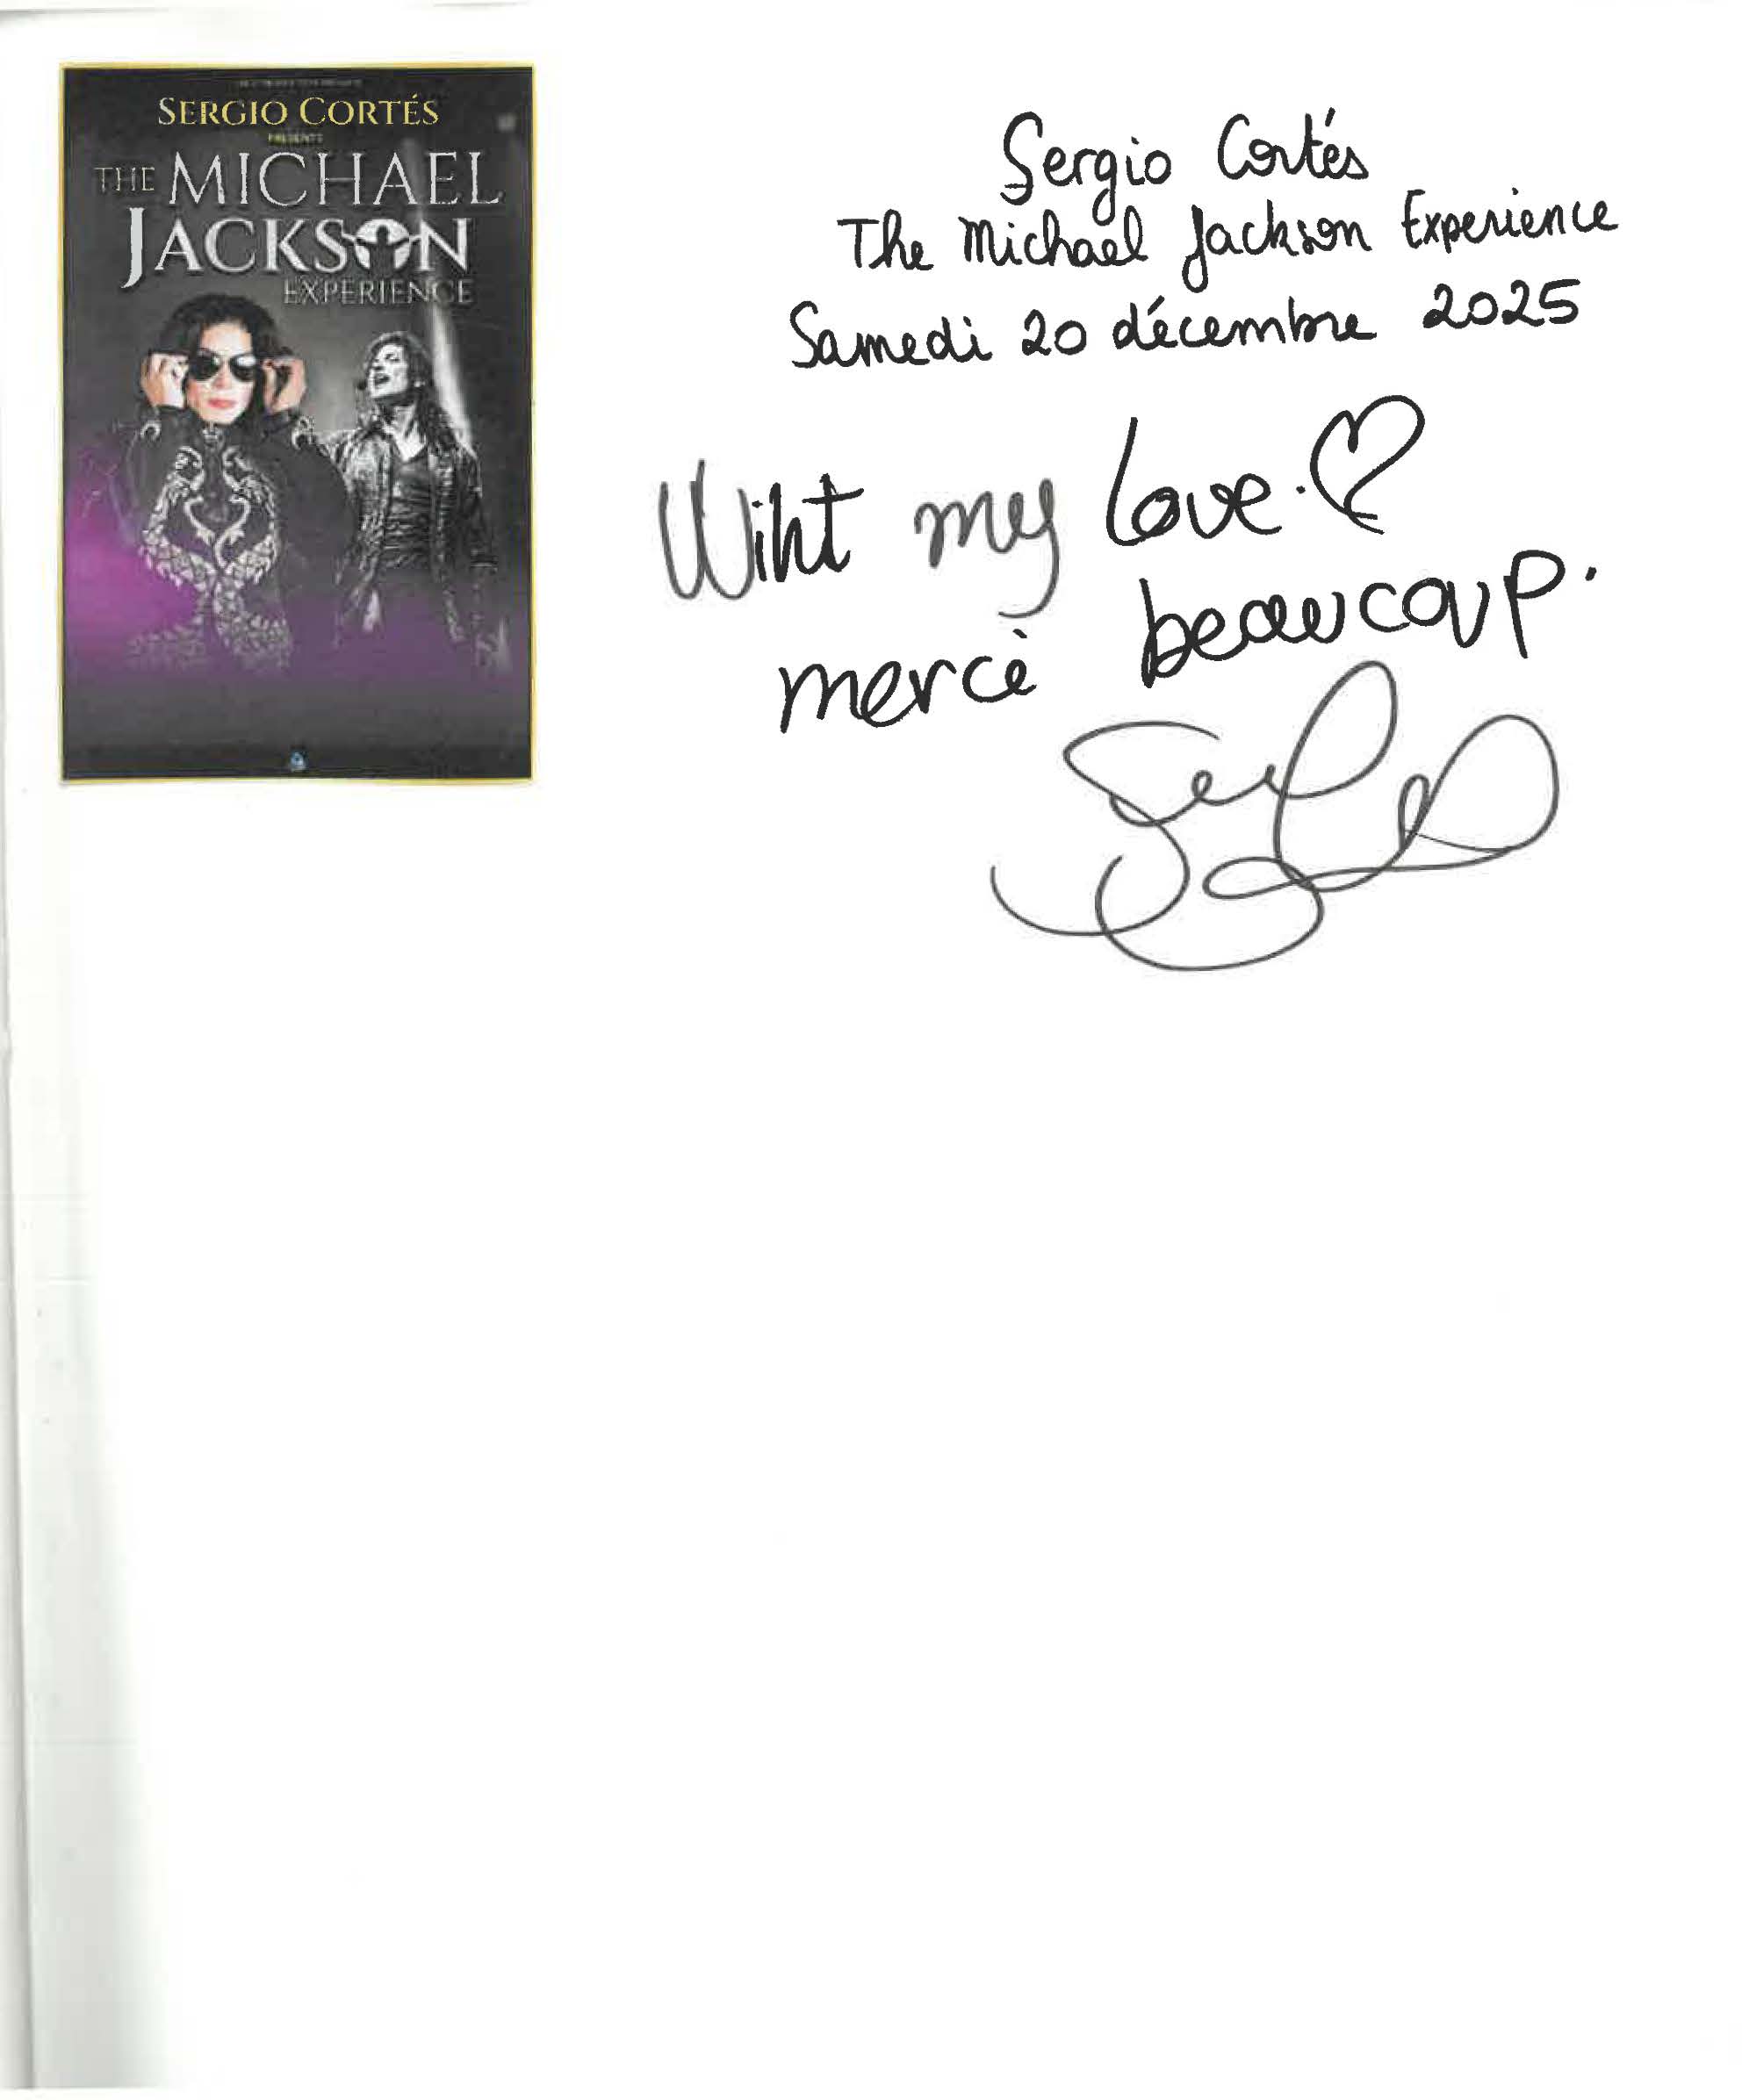 SERGIO CORTÉS
PRESENTS
THE MICHAEL
JACKSON
EXPERIENCE
Sergio Cortés
The Michael Jackson Experience
Samedi 20 décembre 2025
Wiht my love.
merci beaucoup.